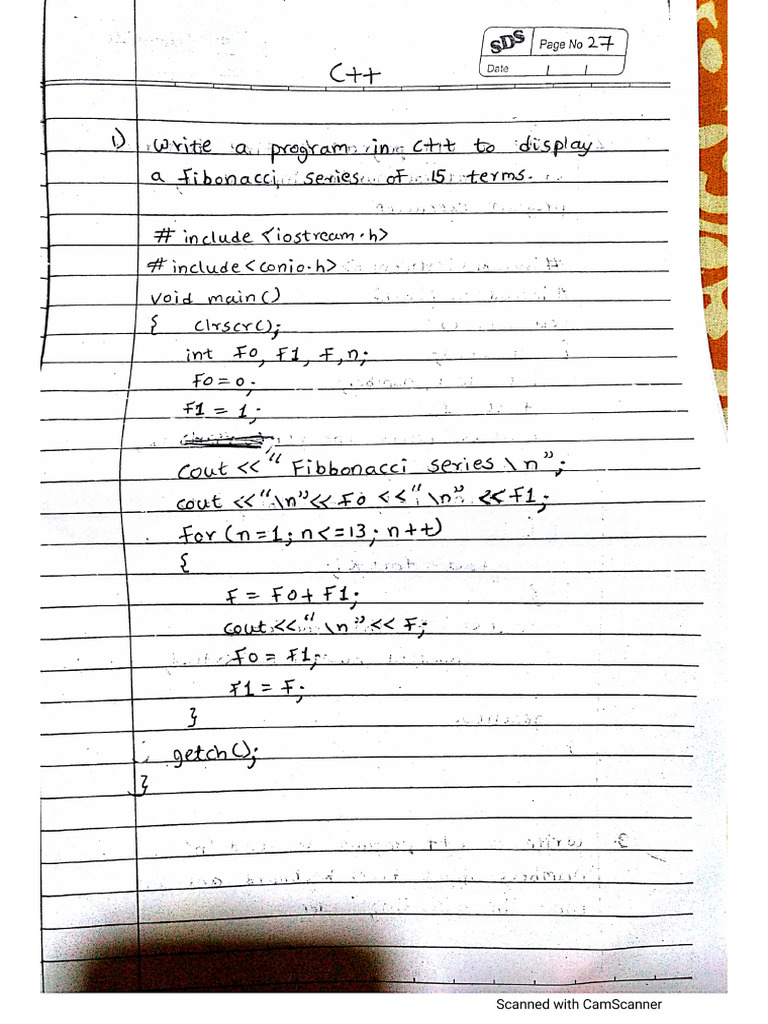 SDS
Page No 27
Date
C++
1) Write a program in C++ to display
a fibonacci series of 15 terms.
# include <iostream.h>
# include <conio.h>
void main()
{ clrscr();
int F0, F1, F, n;
F0 = 0;
F1 = 1;
cout << "Fibbonacci series \n";
cout << "\n" << F0 << "\n" << F1;
for (n=1; n<=13; n++)
{
F = F0 + F1;
cout << "\n" << F;
F0 = F1;
F1 = F;
}
getch();
}
Scanned with CamScanner